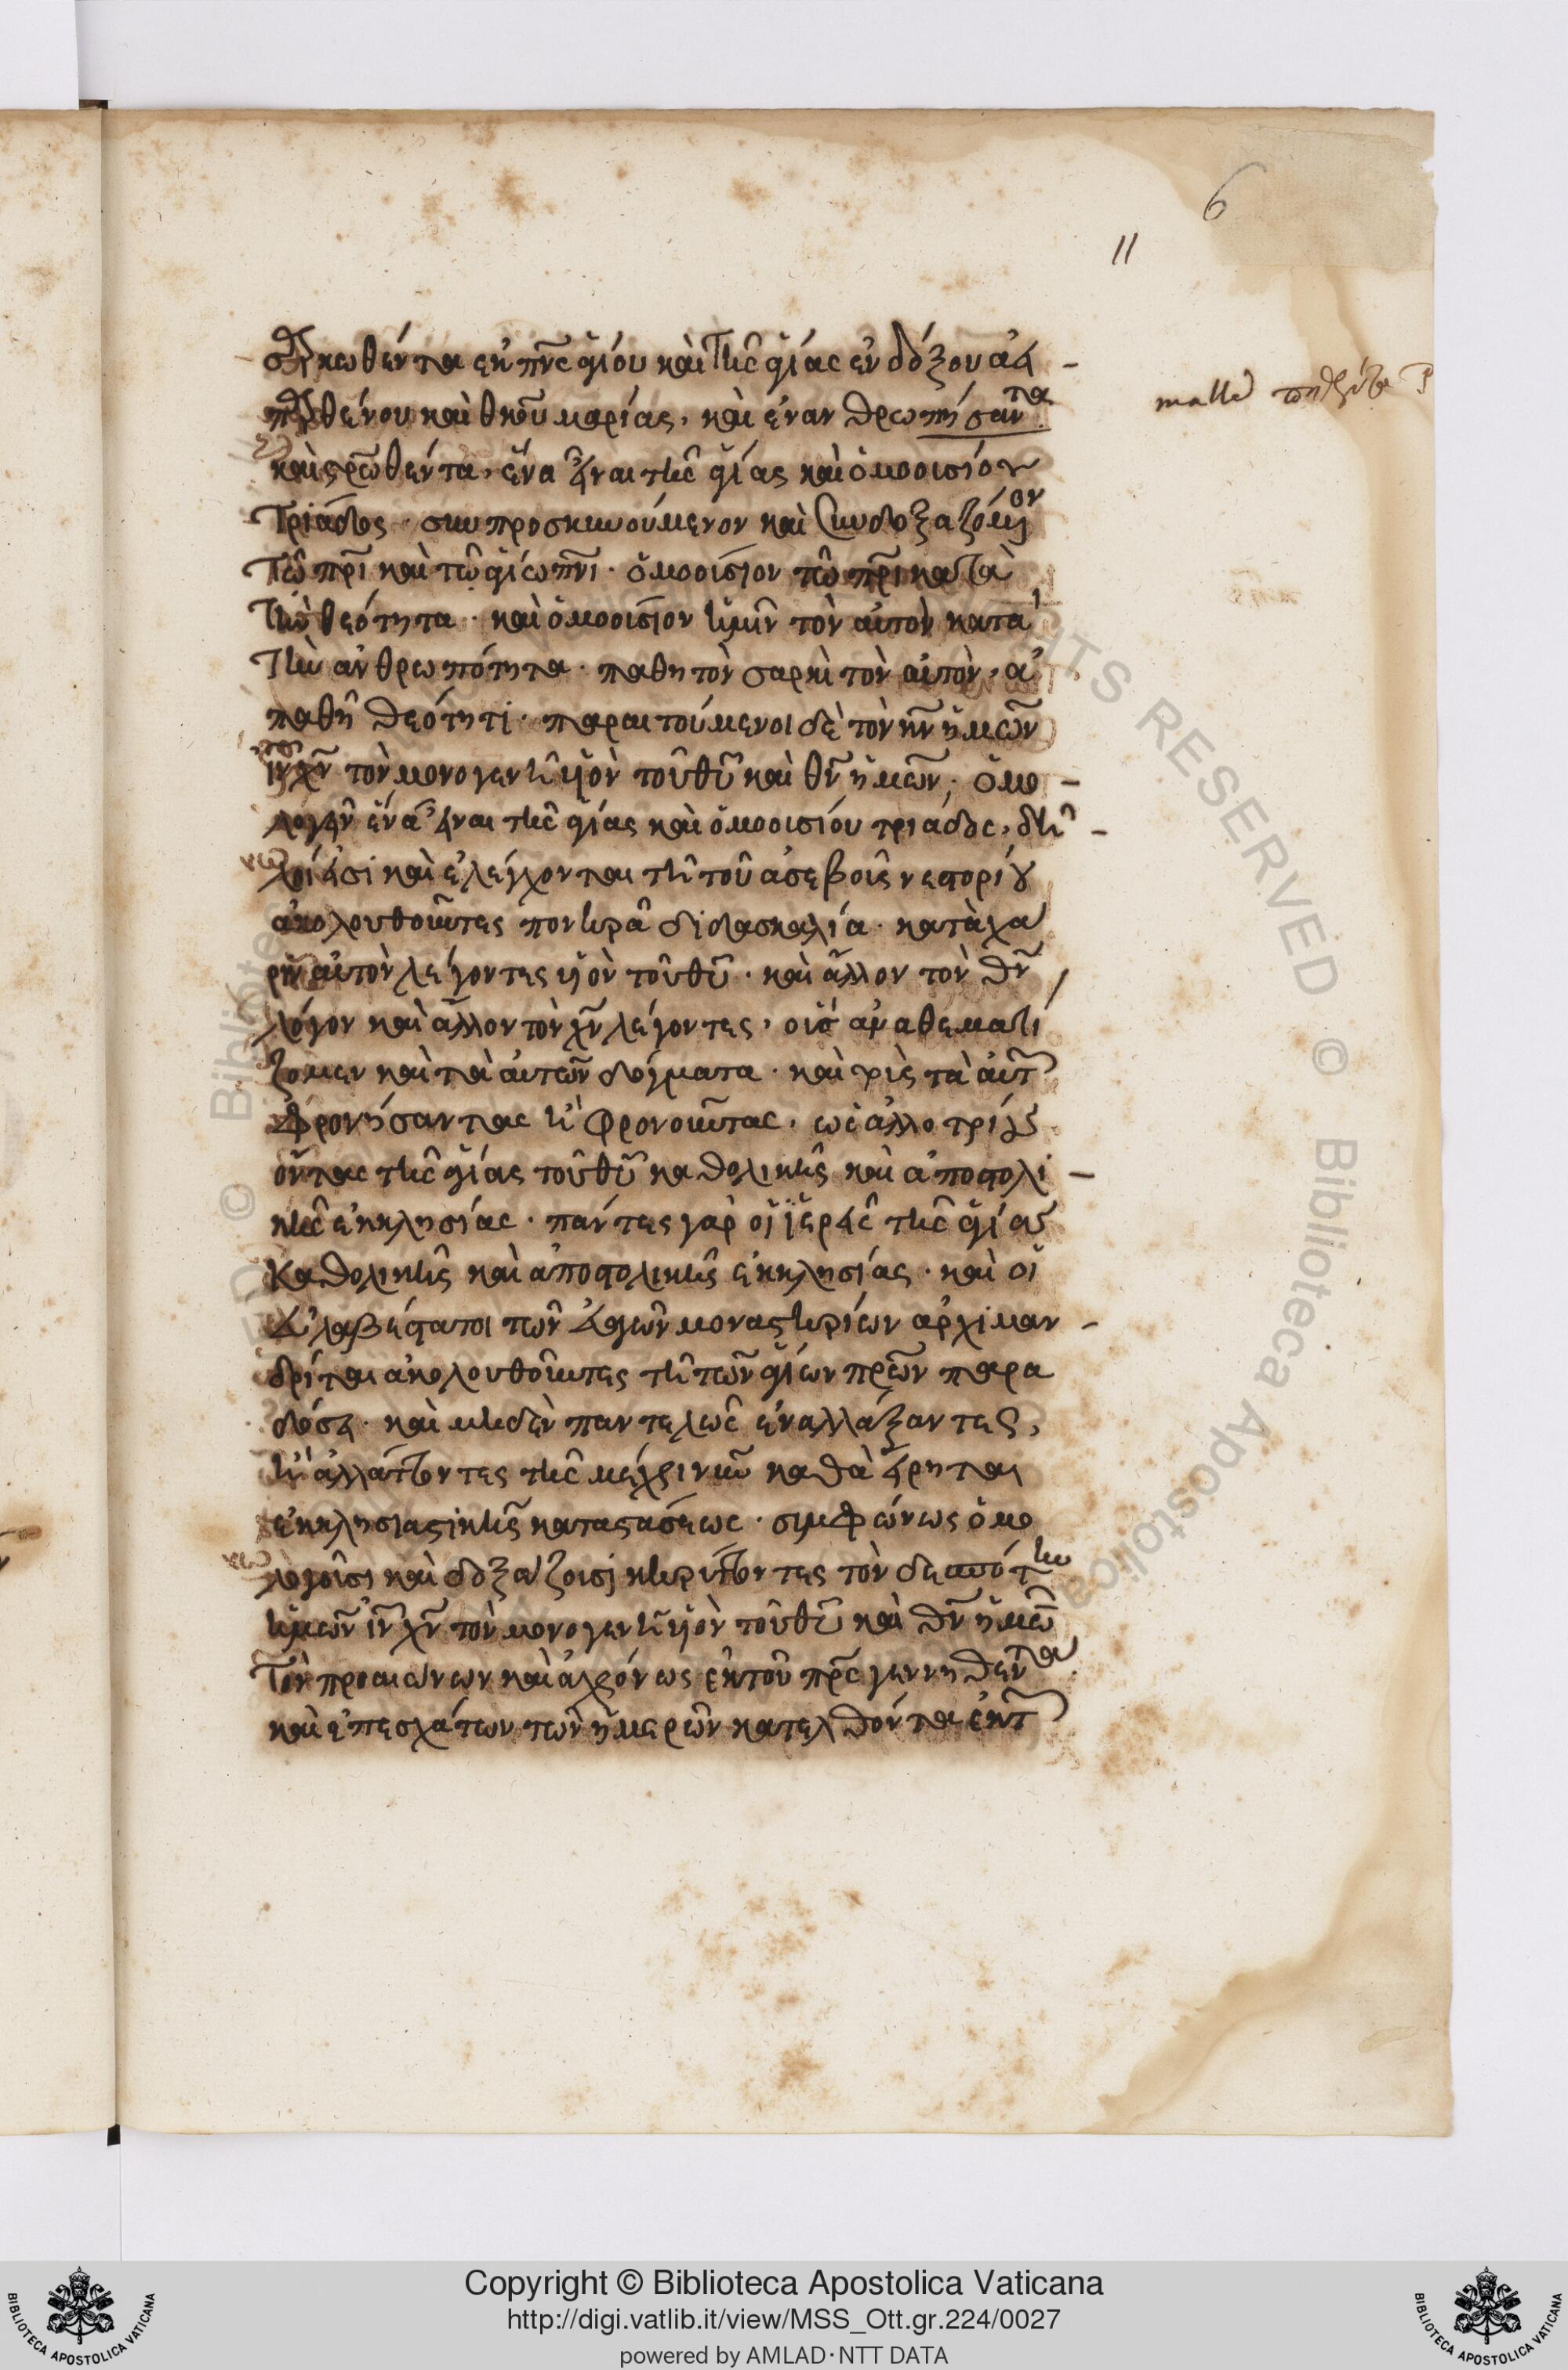 6
11
σαρκωθέντα ἐκ πνς ἁγίου καὶ τῆς ἁγίας ἐνδόξου ἀει
παρθένου καὶ θκου μαρίας, καὶ ἐνανθρωπήσαντα
καὶ στρωθέντα, ἕνα εἶναι τῆς ἁγίας καὶ ὁμοουσίου
τριάδος · συνπροσκυνούμενον καὶ συνδοξαζόμενον
τῶ πρι καὶ τῶ ἁγίω πνι · ὁμοούσιον τῶ πρι κατὰ
τὴν θεότητα · καὶ ὁμοούσιον ἡμῖν τὸν αὐτὸν κατὰ
τὴν ἀνθρωπότητα · παθητὸν σαρκὶ τὸν αὐτὸν, ἀ
παθῆ θεότητι · παραιτούμενοι δὲ τὸν κν ἡμῶν
ιν χν τὸν μονογενῆ υἱὸν τοῦ θυ καὶ θν ἡμῶν, ὁμο
λογεῖν ἕνα εἶναι τῆς ἁγίας καὶ ὁμοουσίου τριάδος, δῆ
λοί εἰσι καὶ ἐλέγχονται τῆ τοῦ ἀσεβοῦς νεστορίου
ἀκολουθοῦντες πονηρᾶ διδασκαλία · κατὰ χά
ριν αὐτὸν λέγοντες υἱὸν τοῦ θυ · καὶ ἄλλον τὸν θν
λόγον καὶ ἄλλον τὸν χν λέγοντες, οὓς ἀναθεματί
ζομεν καὶ τὰ αὐτῶν δόγματα · καὶ τοὺς τὰ αὐτὰ
φρονήσαντας ἢ φρονοῦντας, ὡς ἀλλοτρίους
ὄντας τῆς ἁγίας τοῦ θυ καθολικῆς καὶ ἀποστολι
κῆς ἐκκλησίας · πάντες γὰρ οἱ ἱερεῖς τῆς ἁγίας
καθολικῆς καὶ ἀποστολικῆς ἐκκλησίας · καὶ οἱ
εὐλαβέστατοι τῶν εὐαγῶν μοναστηρίων ἀρχιμαν
δρίται ἀκολουθοῦντες τῆ τῶν ἁγίων πρων παρα
δόσει · καὶ μηδὲν παντελῶς ἐναλλάξαντες,
ἢ ἀλλάττοντες τῆς μέχρι νῦν καθὰ εἴρηται
ἐκκλησιαστικῆς καταστάσεως · συμφώνως ὁμο
λογοῦσι καὶ δοξάζουσι κηρύττοντες τὸν δεσπότην
ἡμῶν ιν χν τὸν μονογενῆ υἱὸν τοῦ θυ καὶ θν ἡμῶν
τὸν προαιώνων καὶ ἀχρόνως ἐκ τοῦ πρς γεννηθέντα
καὶ ἐπεσχάτων τῶν ἡμερῶν κατελθόντα ἐκ τ
Copyright © Biblioteca Apostolica Vaticana
http://digi.vatlib.it/view/MSS_Ott.gr.224/0027
powered by AMLAD·NTT DATA